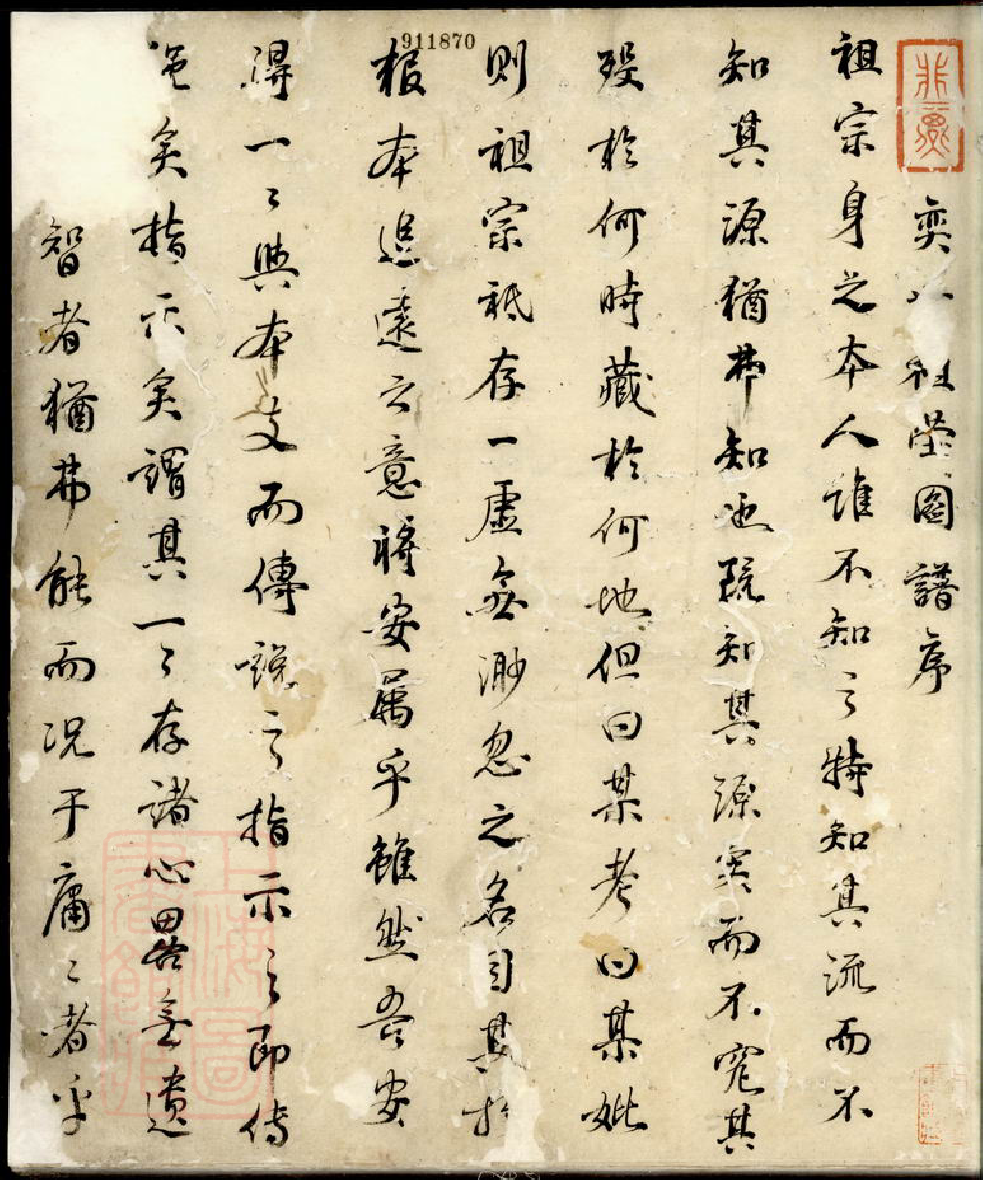 911870
奕 祖塋圖譜序
祖宗身之本人誰不知之特知其流而不
知其源猶弗知也既知其源矣而不究其
歿於何時藏於何地但曰某考曰某妣
則祖宗祗存一虛無渺忽之名目其於
根本追遠之意將安屬乎雖然吾安
得一々與本支而傳說之指示之即傳
矣指示矣謂其一々存諸心略無遺
智者猶弗能而況于庸々者乎
上海圖書館藏